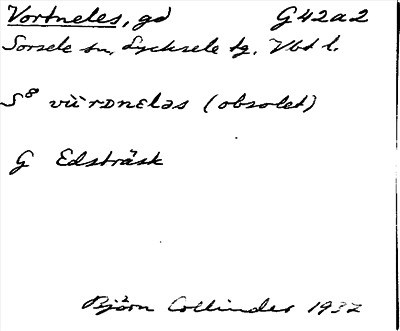 Vortneles, gd G42a2
Sorsele sn, Lycksele tg. Vbt l.
S8 vùrdnɛləs (obsolet)
G Edsträsk
Björn Collinder 1937